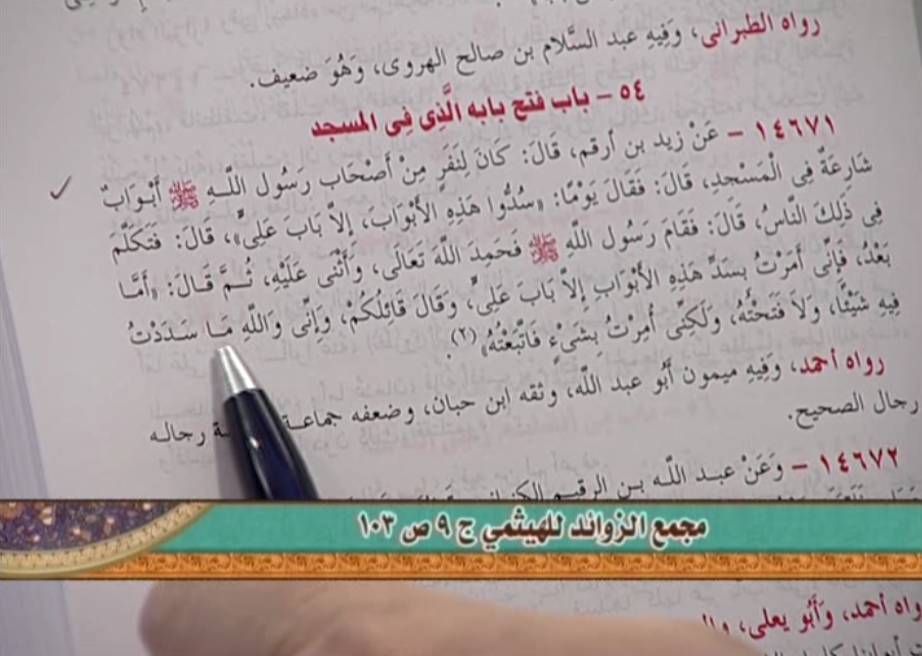 رواه الطبرانى، وَفِيهِ عبد السَّلام بن صالح الهروى، وَهُوَ ضعيف.
٥٤ – باب فتح بابه الَّذِى فِى المسجد
١٤٦٧١ – عَنْ زيد بن أرقم، قَالَ: كَانَ لِنَفَرٍ مِنْ أَصْحَابِ رَسُولِ اللَّهِ ﷺ أَبْوَابٌ
شَارِعَةٌ فِى الْمَسْجِدِ، قَالَ: فَقَالَ يَوْمًا: «سُدُّوا هَذِهِ الأَبْوَابَ، إِلاَّ بَابَ عَلِىٍّ»، قَالَ: فَتَكَلَّمَ
فِى ذَلِكَ النَّاسُ، قَالَ: فَقَامَ رَسُولُ اللَّهِ ﷺ فَحَمِدَ اللَّهَ تَعَالَى، وَأَثْنَى عَلَيْهِ، ثُمَّ قَالَ: «أَمَّا
بَعْدُ، فَإِنِّى أَمَرْتُ بِسَدِّ هَذِهِ الأَبْوَابِ إِلاَّ بَابَ عَلِىٍّ، وَقَالَ قَائِلُكُمْ، وَإِنِّى وَاللَّهِ مَا سَدَدْتُ
فِيهِ شَيْئًا، وَلاَ فَتَحْتُهُ، وَلَكِنِّى أُمِرْتُ بِشَىْءٍ فَاتَّبَعْتُهُ»(٢).
رواه أحمد، وَفِيهِ ميمون أَبُو عبد اللَّه، وثقه ابن حبان، وضعفه جماعة، رجاله
رجال الصحيح.
١٤٦٧٢ – وَعَنْ عبد اللَّه بن الرقيم الكنانى
مجمع الزوائد للهيثمي ج ٩ ص ١٠٣
رواه أحمد، وَأَبُو يعلى،